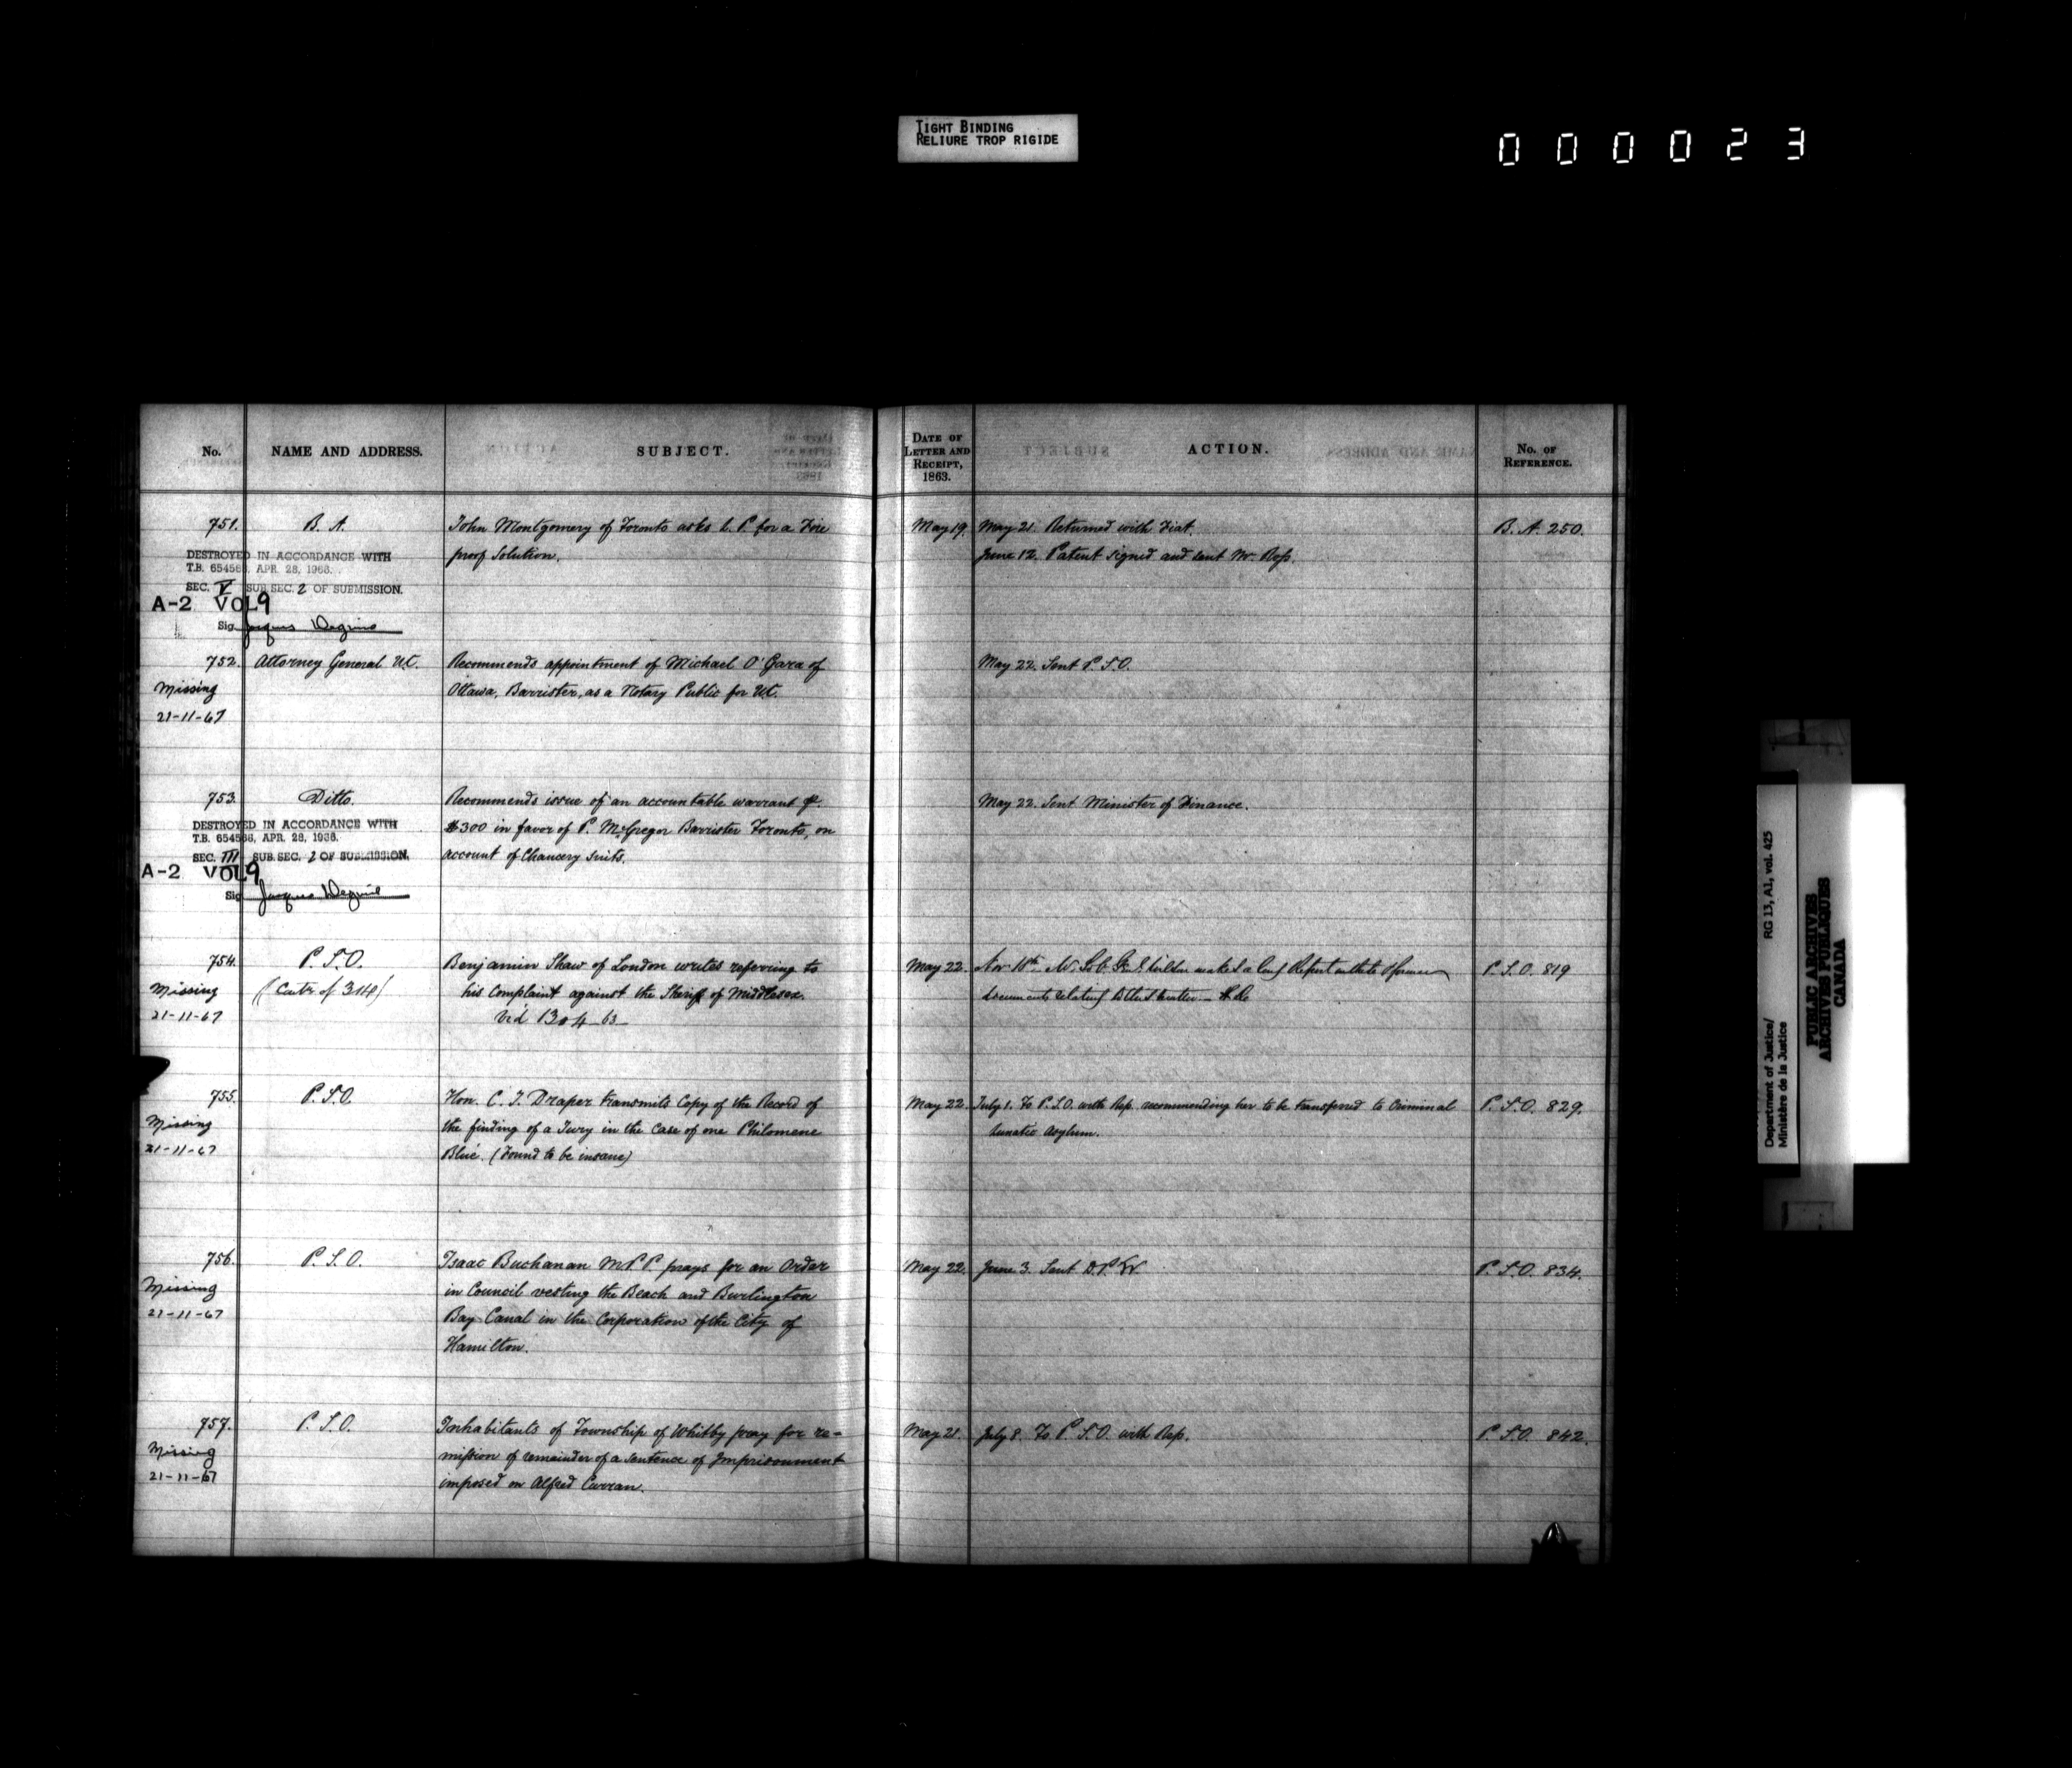 TIGHT BINDING
RELIURE TROP RIGIDE
000023
No. NAME AND ADDRESS. SUBJECT. DATE OF LETTER AND RECEIPT, 1863. ACTION. No. OF REFERENCE.
751. B. A. John Montgomery of Toronto asks L. P. for a Fire May 19. May 21. Returned with Fiat. B. A. 250.
proof Solution. June 12. Patent signed and sent Mr. Ross.
DESTROYED IN ACCORDANCE WITH
T.B. 654566, APR. 28, 1966.
SEC. V SUB SEC. 2 OF SUBMISSION.
A-2 VOL 9
Sig.
752. Attorney General U.C. Recommends appointment of Michael O'Gara of May 22. Sent P. S. O.
Missing Ottawa, Barrister, as a Notary Public for U.C.
21-11-67
753. Ditto. Recommends issue of an accountable warrant of May 22. Sent Minister of Finance.
$300 in favor of P. McGregor Barrister Toronto, on
account of Chancery suits.
DESTROYED IN ACCORDANCE WITH
T.B. 654566, APR. 28, 1966.
SEC. III SUB. SEC. 2 OF SUBMISSION.
A-2 VOL 9
Sig
754. P. S. O. Benjamin Shaw of London writes referring to May 22. Nov 18th P. S. O. 819
Missing his Complaint against the Sheriff of Middlesex.
21-11-67 1304-63
755. P. S. O. Hon. C. J. Draper transmits Copy of the Record of May 22. July 1. To P. S. O. with Rep. recommending her to be transferred to Criminal P. S. O. 829.
Missing the finding of a Jury in the Case of one Philomene Lunatic Asylum.
21-11-67 Blué. (Found to be insane)
756. P. S. O. Isaac Buchanan M P P. prays for an Order May 22. June 3. Sent D. P. W. P. S. O. 834.
Missing in Council vesting the Beach and Burlington
21-11-67 Bay Canal in the Corporation of the City of
Hamilton.
757. P. S. O. Inhabitants of Township of Whitby pray for re- May 21. July 8. To P. S. O. with Rep. P. S. O. 842.
Missing mission of remainder of a sentence of Imprisonment
21-11-67 imposed on Alfred Curran.
Department of Justice/ RG 13, A1, vol. 425
Ministère de la Justice
PUBLIC ARCHIVES
ARCHIVES PUBLIQUES
CANADA